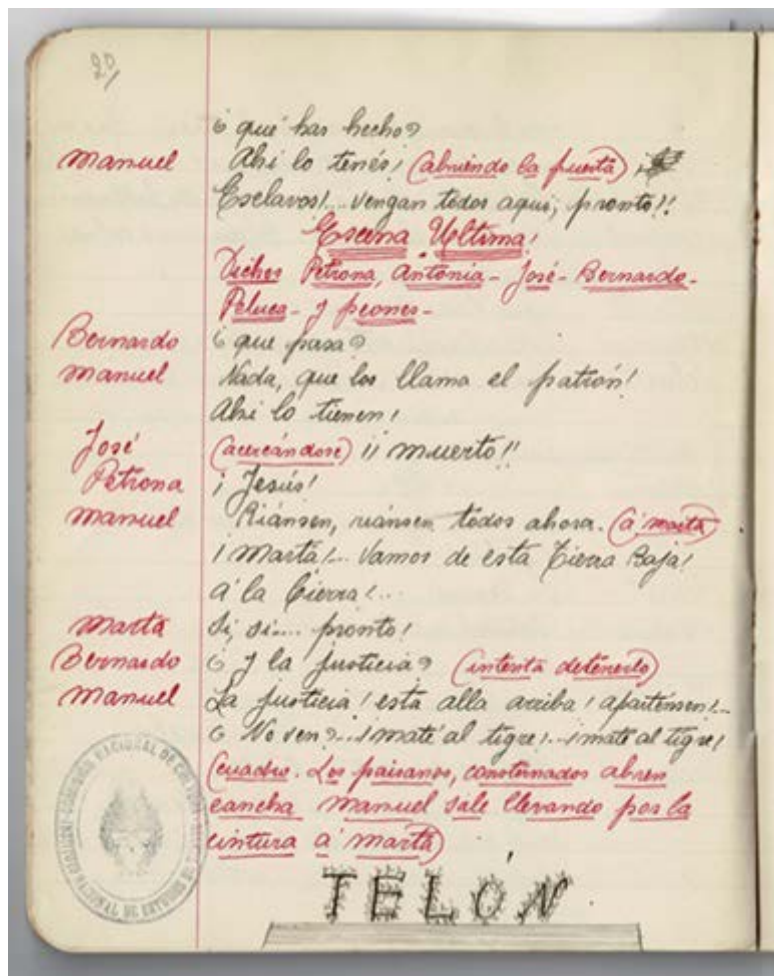 20/
¿ que has hecho?
Manuel Ahi lo tenés! (abriendo la puerta) ¡
Esclavos!... vengan todos aqui, pronto!!
Escena Ultima!
Dichos Petrona, Antonia - José - Bernardo -
Peluca - y peones -
Bernardo ¿ que pasa?
Manuel Nada, que los llama el patrón!
Ahi lo tienen!
José (acercándose) ¡¡ muerto!!
Petrona ¡ Jesús!
Manuel Riánsen, riánsen todos ahora. (á Marta)
¡ Marta!... Vamos de esta Tierra Baja!
á la Cierra!...
Marta Si, si.... pronto!
Bernardo ¿ y la justicia? (intenta detenerlo)
Manuel La justicia! esta alla arriba! apartensen!...
¿ No ven?... ¡maté al tigre!... ¡maté al tigre!
(cuadro. Los paisanos, consternados abren
cancha Manuel sale llevando por la
cintura á Marta)
TELÓN
COMISION NACIONAL DE
INSTITUTO NACIONAL DE ESTUDIOS DE